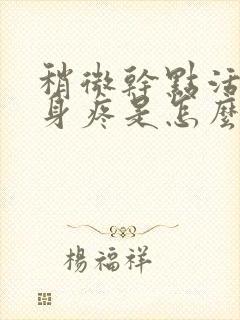 稍微幹點活
身疼是怎麼
楊福祥